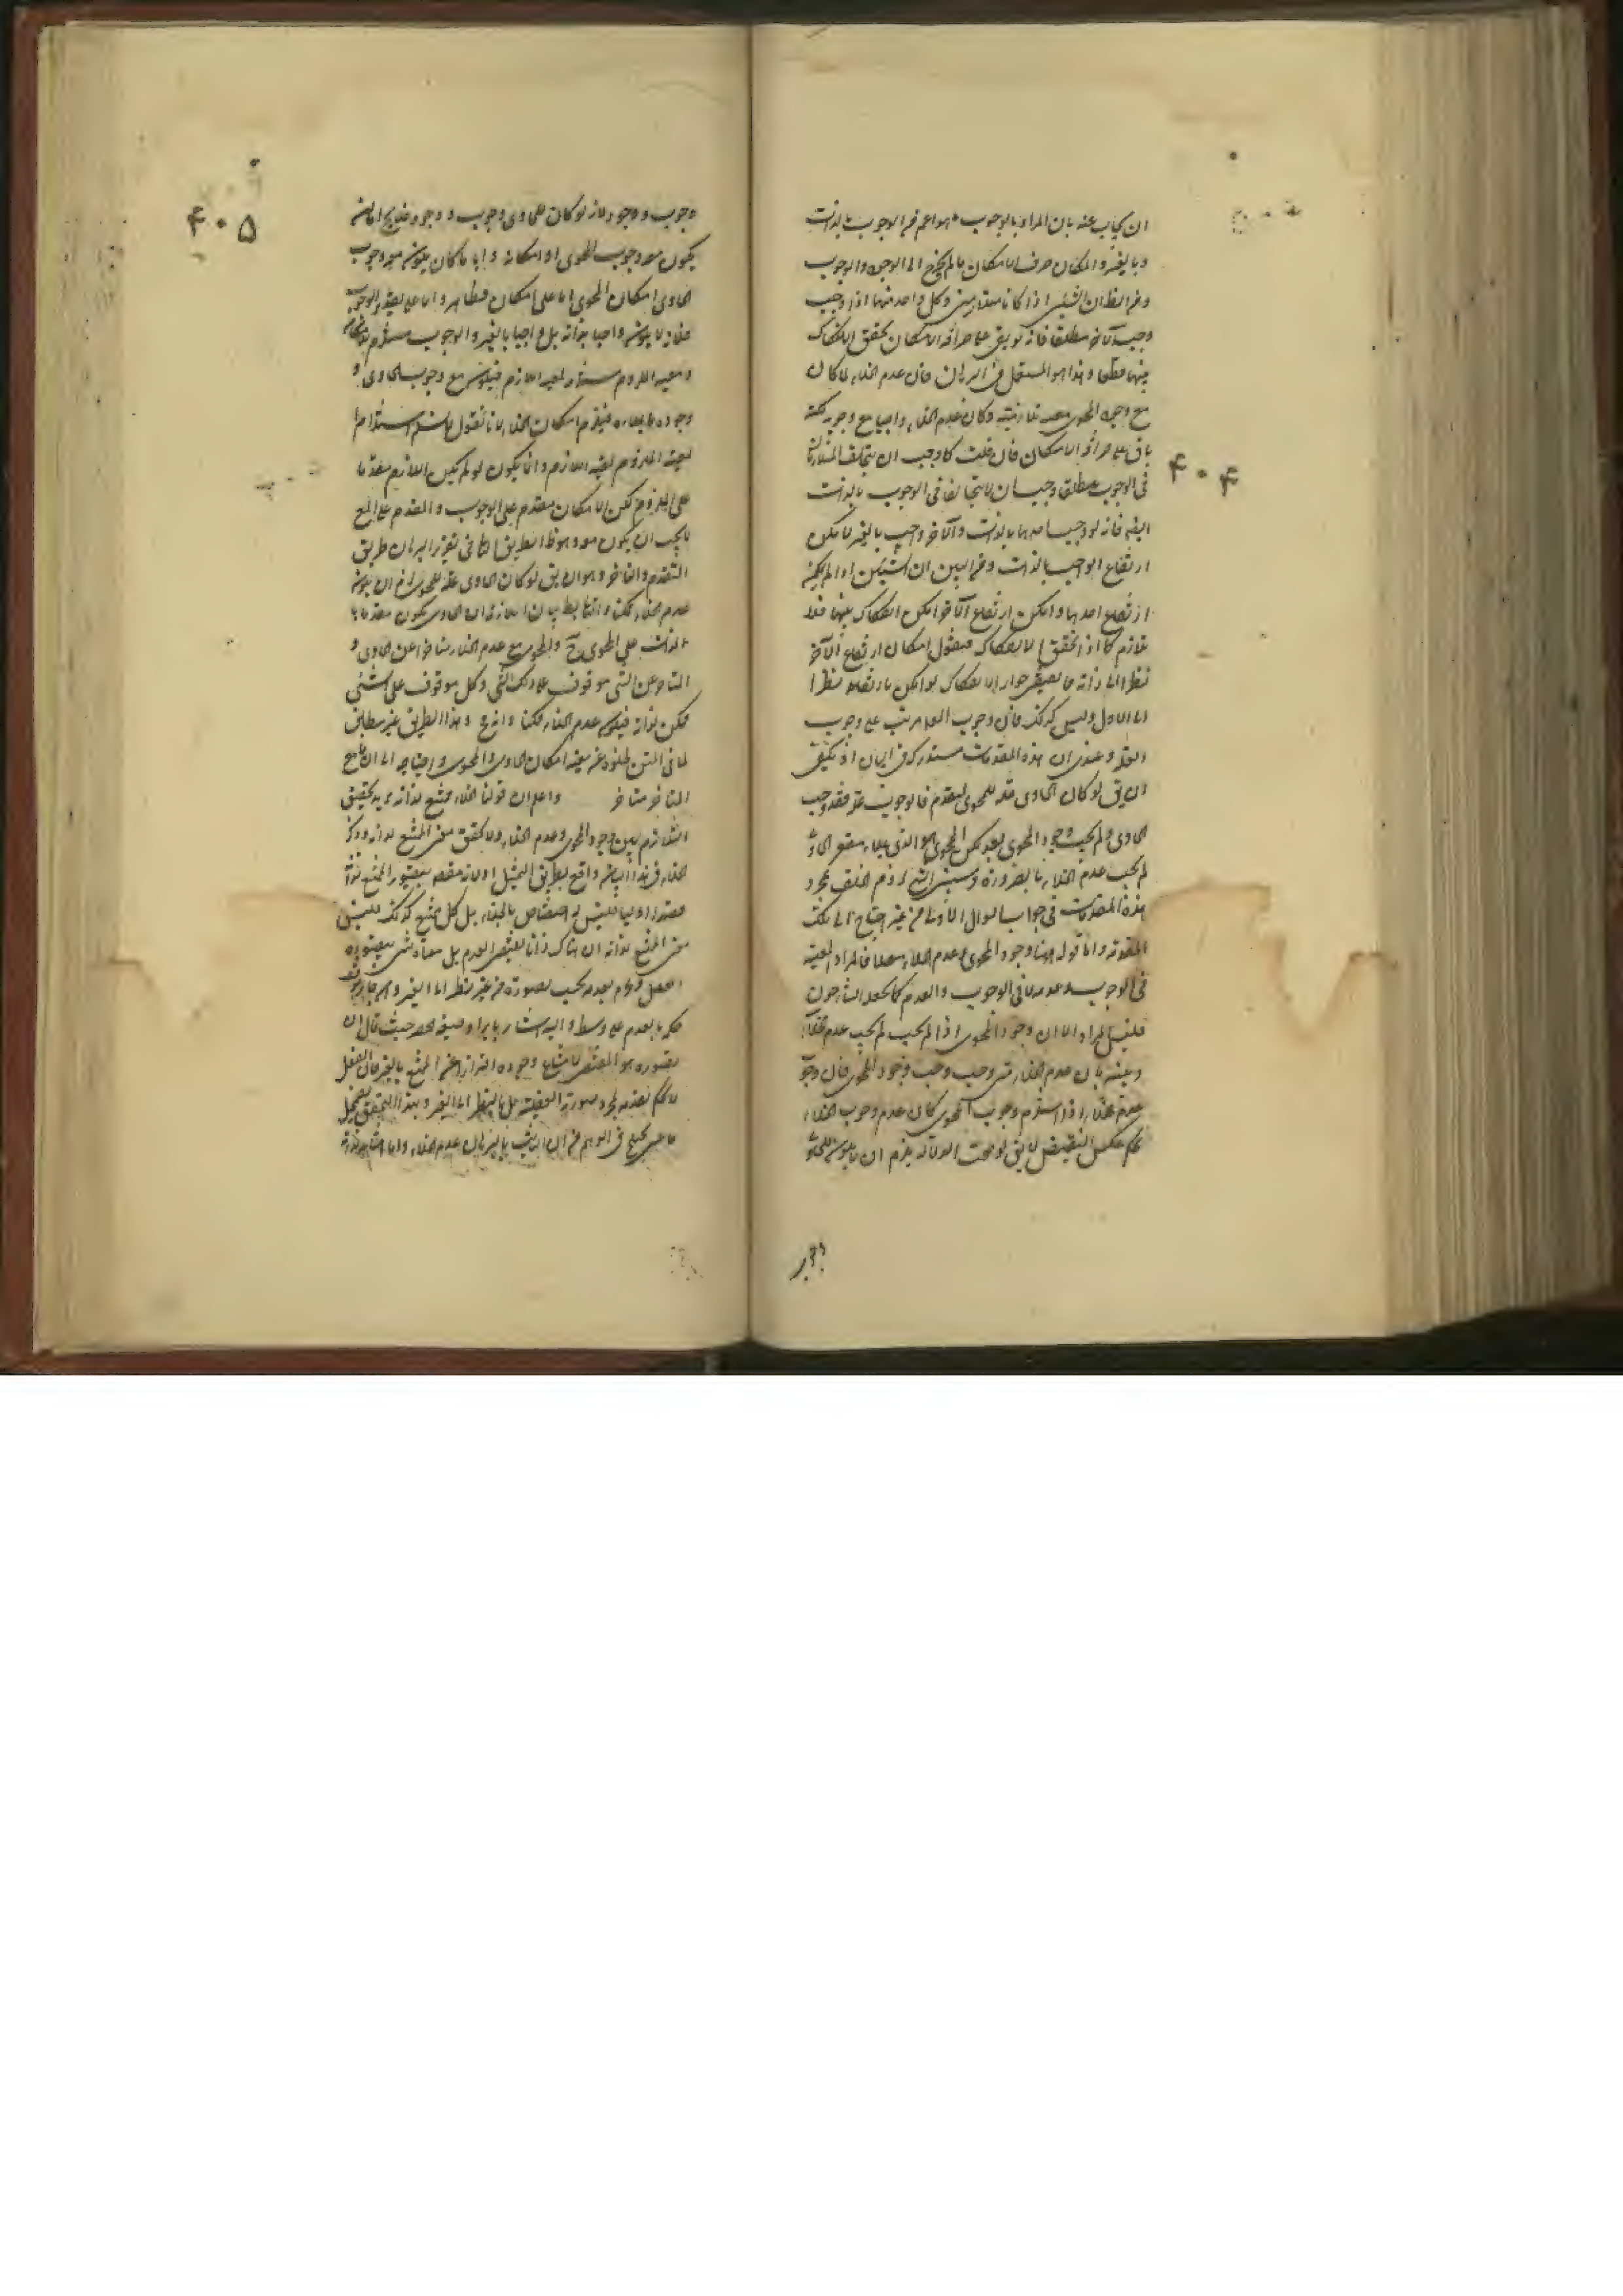 ان يجاب عنه بان المراد بالوجوب ما هو اعم من الوجوب بالذات
وبالغير والامكان صرف الامكان ما لم يخرج الى الوجود والوجوب
ومن الظ ان الشيئين اذا كانا متلازمين وكل واحد منهما اذا وجب
وجب الآخر مطلقا فانه لو بقى على صرافة الامكان تحقق الانفكاك
بينهما قطعا وهذا هو المستعمل فى البرهان فان عدم الخلاء لما كان
مع وجود المحوى معية تلازمية وكان عدم الخلاء واجبا مع وجوبه لكنه
باق على صرافة الامكان فان قلت كما وجب ان يتخلف المتلازمان
فى الوجوب مطلقا وجب ان لا يتخالفا فى الوجوب بالذات
ايضا فانه لو وجب احدهما بالذات والآخر واجب بالغير لا مكن
ارتفاع الواجب بالذات ومن البين ان الشيئين اذا لم يمكن
ارتفاع احدهما وامكن ارتفاع الآخر امكن انفكاك بينهما فلا
تلازم اذ لا تحقق الانفكاك فنقول امكان ارتفاع الآخر
نظرا الى ذاته انما يقتضى جواز الانفكاك لو امكن ارتفاعه نظرا
الى الاول وليس كذلك فان وجوب المعلول مرتب على وجوب
العلة وعندى ان هذه المقدمات مستدركة فى البيان اذ يكفى
ان يق لو كان الحاوى علة للمحوى لتقدم فالوجوب عليه فقد وجب
الحاوى ولم يجب وجود المحوى بعد لكن المحوى هو الذى يملاء مقعر الحاوى
لم يجب عدم الخلاء بالضرورة
هذه المقدمات فى جواب السؤال الاول من غير احتياج الى تلك
المقدمة واما قوله وجود المحوى وعدم الخلاء معا فالمراد المعية
فى الوجوب وعدمه لا فى الوجوب والعدم كما تخيله الشارحون
فليس المراد الا ان وجود المحوى اذا لم يجب لم يجب عدم الخلاء
وبينه بان عدم الخلاء متى وجب وجب وجود المحوى فان وجوب
عدم الخلاء اذا استلزم وجوب المحوى كان عدم وجوب الخلاء
بحكم عكس النقيض لا يق لو صحت الدلالة يلزم ان لا يكون للحاوى
۴۰۴
وجوب ووجود لانه لو كان للحاوى وجوب ووجود
يكون معه وجوب المحوى او امكانه وايا ما كان يكون مع وجوب
الحاوى امكان المحوى اما على امكان فظاهر واما على تقدير الوجوب
فلانه لا يكون واجبا بذاته بل واجبا بالغير والوجوب مستلزم لامكانه
ومعية الملزوم مستلزمة لمعية اللازم فيكون مع وجوب الحاوى
وجوده فيلزم امكان الخلاء لانا نقول لا نسلم استلزام
معية الملزوم لمعية اللازم وانما يكون لو لم يكن اللازم مقدما
على الملزوم لكن الامكان متقدم على الوجوب والمتقدم على المع
لا يجب ان يكون معه وهو ظ الطريق الثانى فى تقرير البرهان طريق
التقدم والتاخر وهو ان يق لو كان الحاوى علة للمحوى لزم ان يكون
عدم الخلاء ممكنا والتالى بط بيان الملازمة ان الحاوى يكون مقدما
بالذات على المحوى ح والمحوى مع عدم الخلاء متاخرا عن الحاوى و
المتاخر عن الشئ موقوف على ذلك الشئ وكل موقوف على الشئ
ممكن لذاته فيكون عدم الخلاء ممكنا وهذا الطريق غير مطابق
لما فى المتن لخلوه عن معية امكان الحاوى والمحوى واحتياجه الى ان ما مع
المتاخر متاخر واعلم ان قولنا الخلاء ممتنع لذاته يريد تحقيق
التلازم بين وجود المحوى وعدم الخلاء ولا تحقق معنى الممتنع لذاته وذكر
الخلاء فى هذا المباحث واقع بطريق التمثيل
فليس له اختصاص بالخلاء بل كل ممتنع كذلك فليس
معنى الممتنع لذاته ان هناك ذاتا يقتضى العدم بل معناه شئ يتصوره
العقل ويجزم بعدمه بحسب تصوره من غير نظر الى الغير
حكمه بالعدم على وسط واليه اشار بايراد صيغة الحصر حيث قال ان
تصوره هو المقتضى لامتناع وجوده احترازا عن الممتنع بالغير فان العقل
لا يحكم بعدمه بمجرد صورته العقلية بل بالنظر الى الغير وبهذا التحقيق يضمحل
ما عسى يختلج فى الوهم من ان الثابت بالبرهان عدم الخلاء واما امتناعه لذاته
۴۰۵